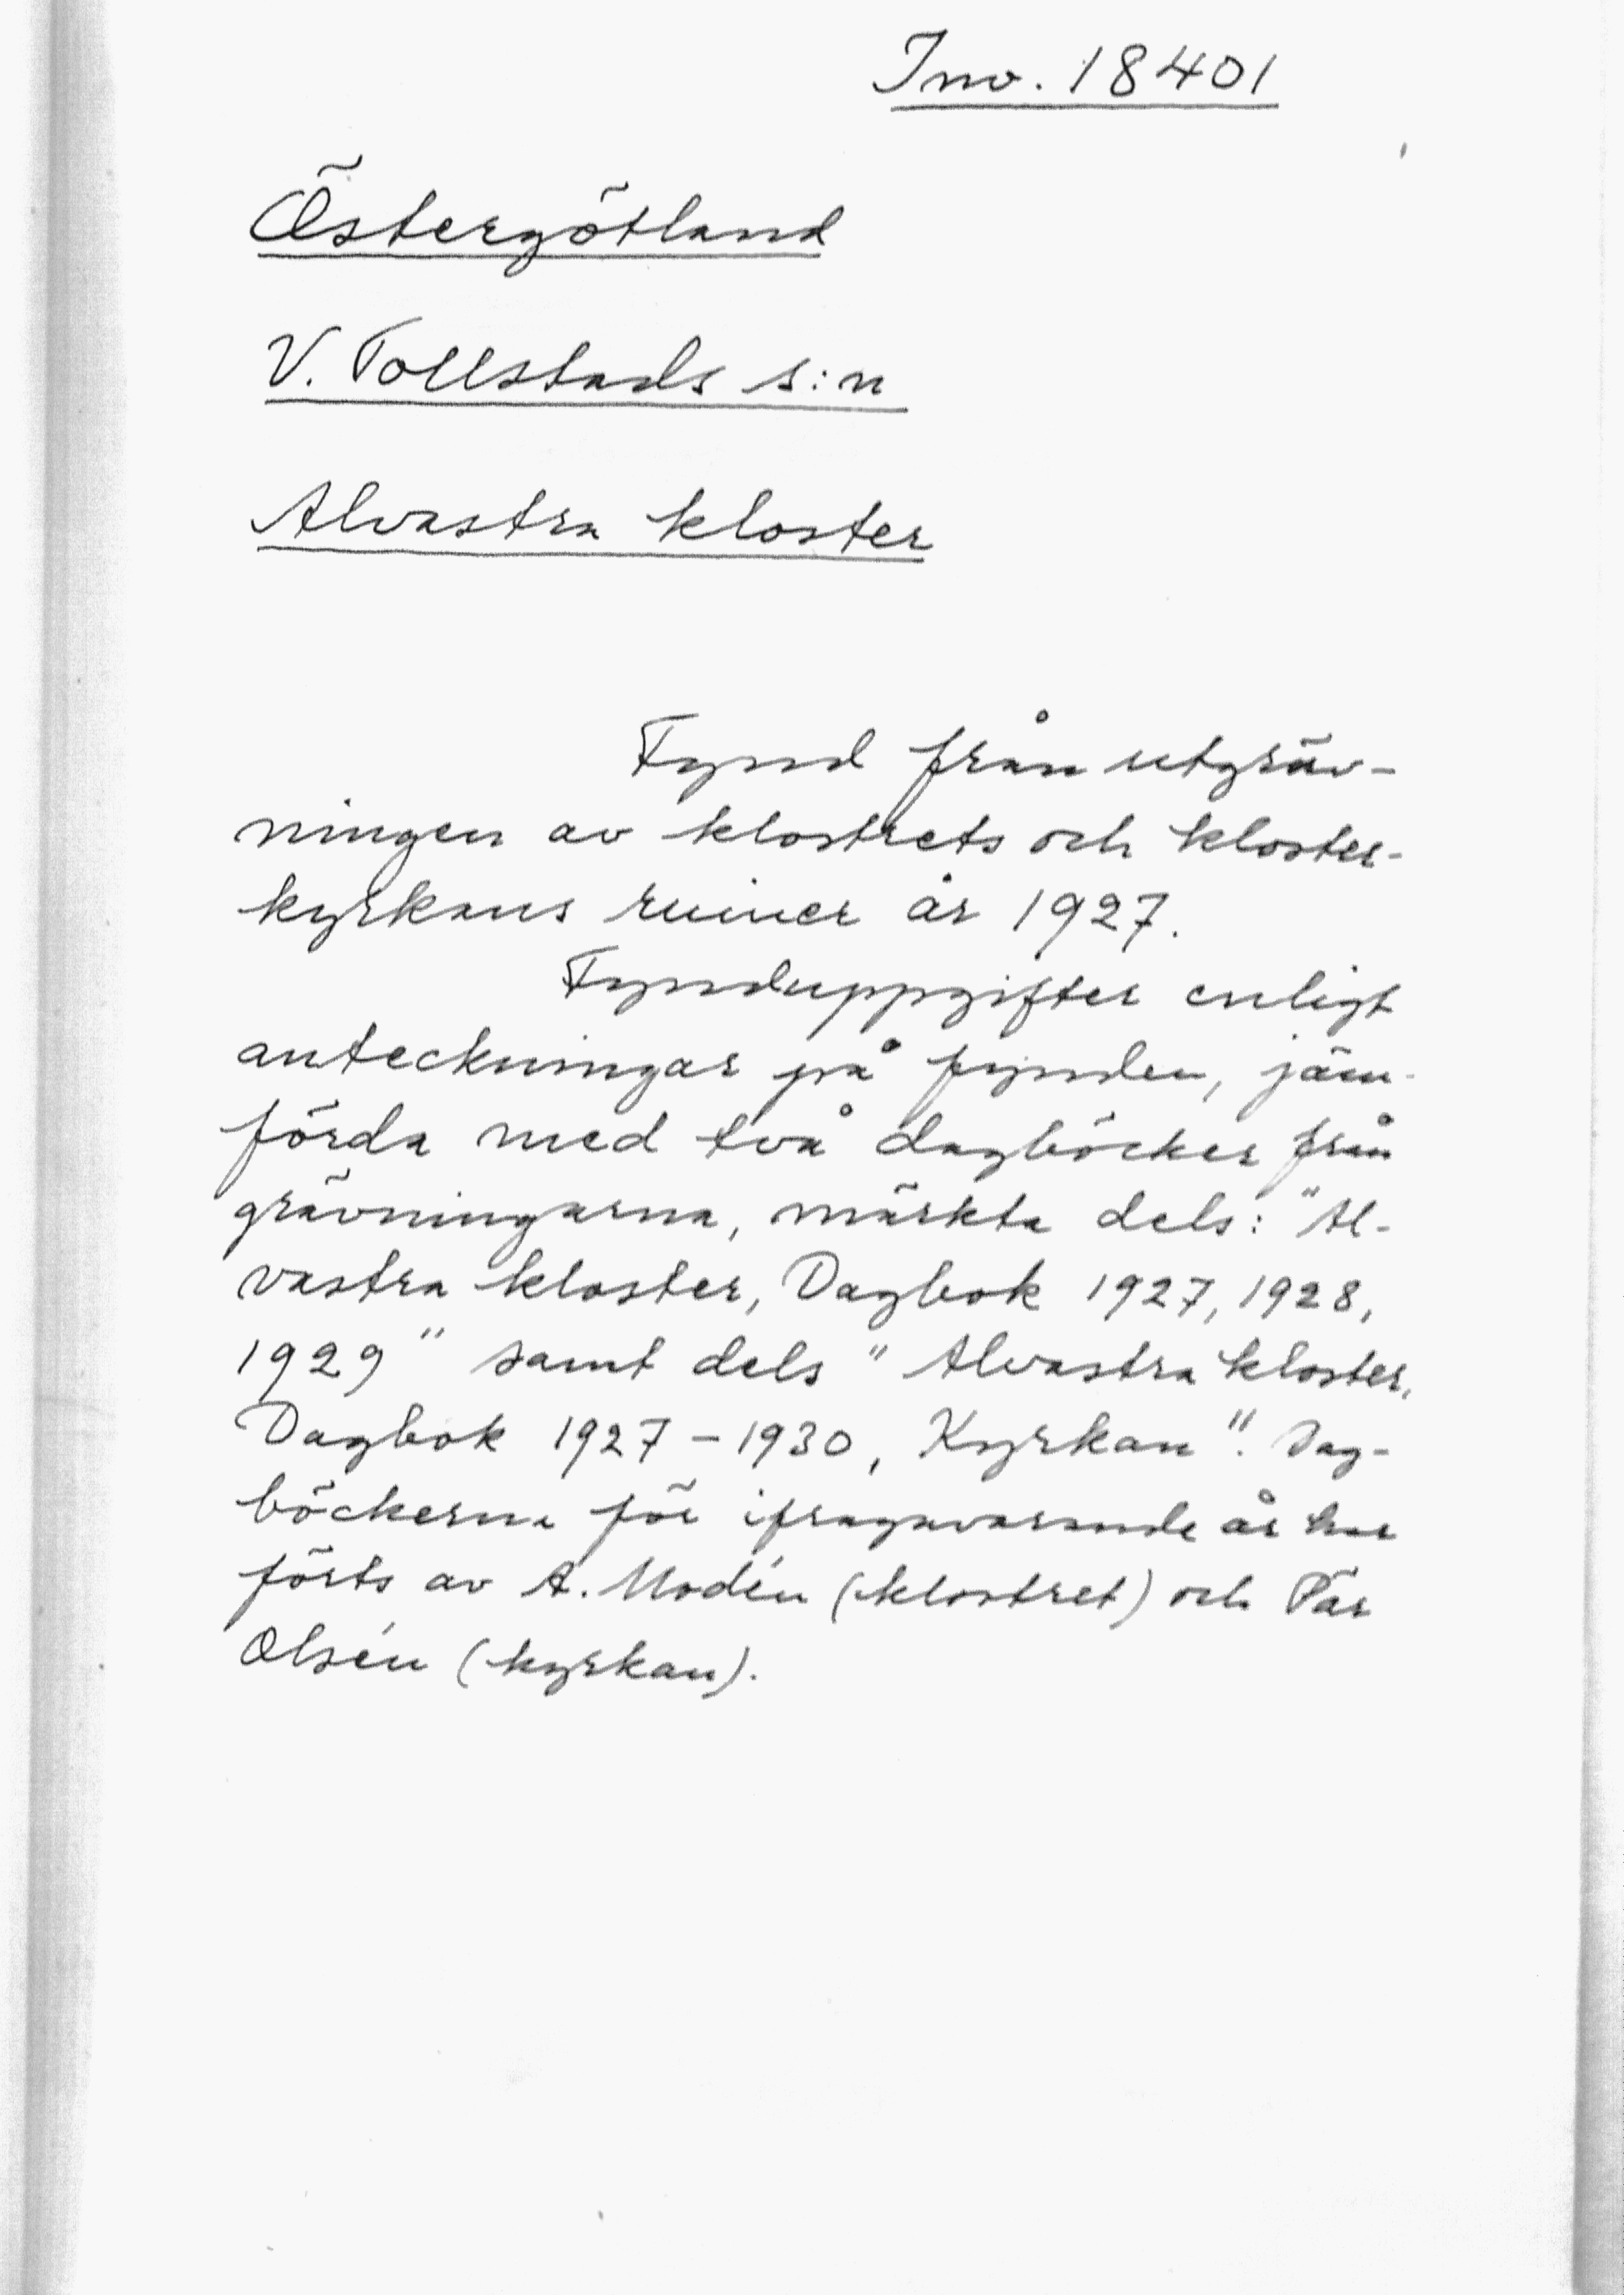 Inv. 18401
Östergötland
V. Tollstads s:n
Alvastra kloster
Fynd från utgräv-
ningen av klostrets och kloster-
kyrkans ruiner år 1927.
Fynduppgifter enligt
anteckningar på fynden, jäm-
förda med två dagböcker från
grävningarna, märkta dels: "Al-
vastra kloster, Dagbok 1927, 1928,
1929" samt dels "Alvastra kloster,
Dagbok 1927-1930, Kyrkan". Dag-
böckerna för ifrågavarande år har
förts av A. Modén (klostret) och Pär
Olsén (kyrkan).